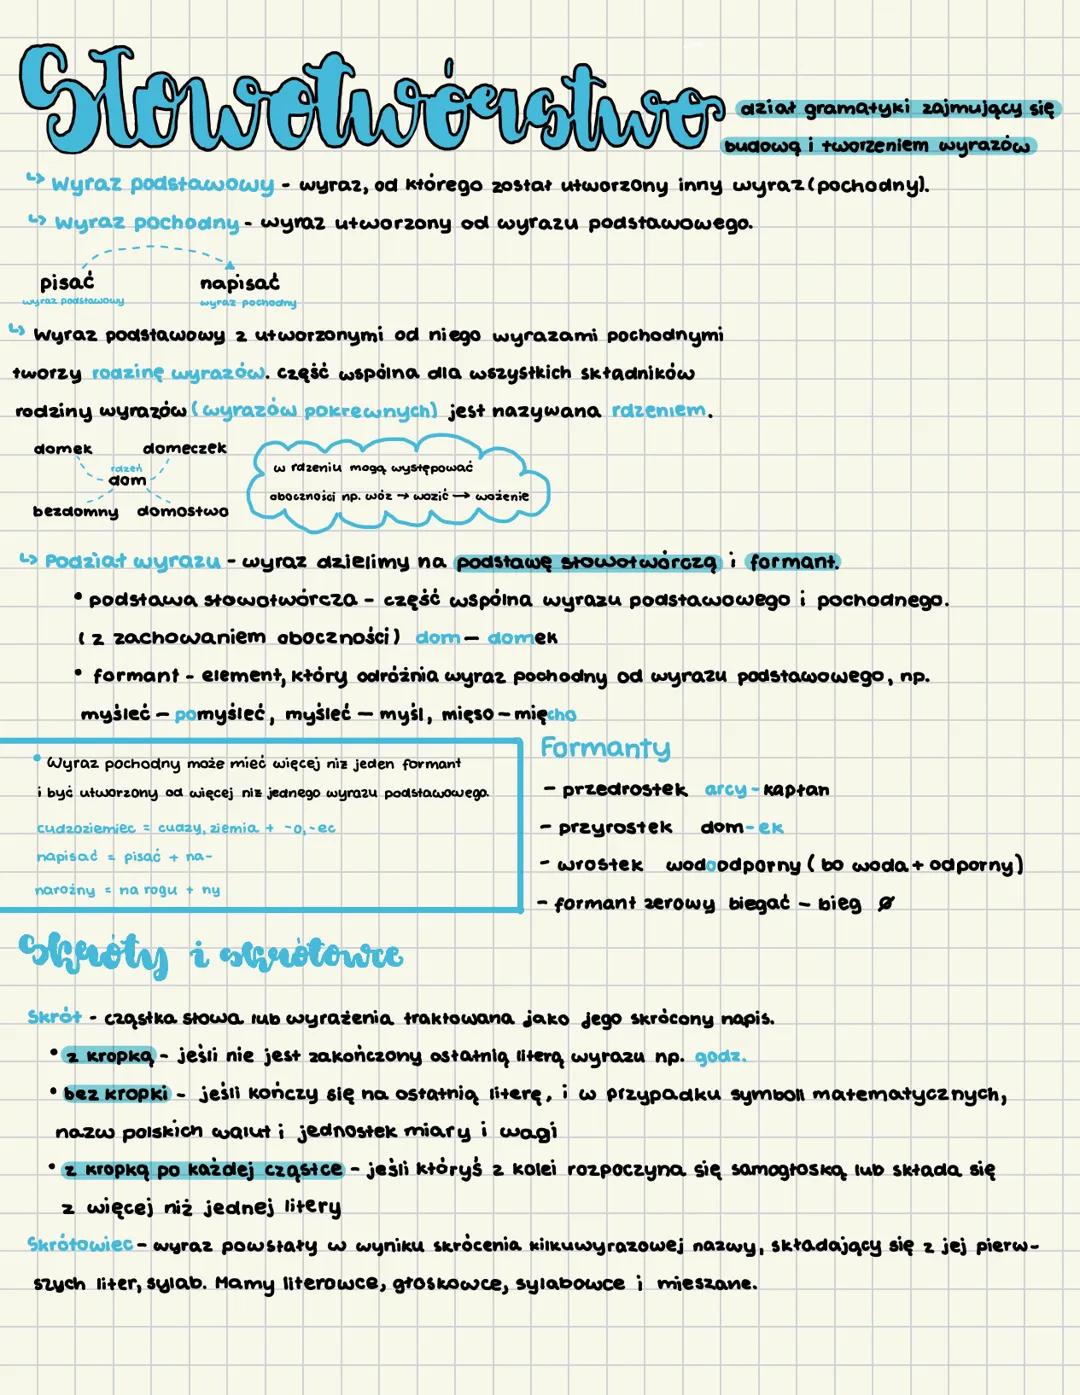 Słowotwórstwo
dział gramatyki zajmujący się
budową i tworzeniem wyrazów
↳ Wyraz podstawowy - wyraz, od którego został utworzony inny wyraz (pochodny).
↳ Wyraz pochodny - wyraz utworzony od wyrazu podstawowego.
pisać napisać
wyraz podstawowy wyraz pochodny
↳ Wyraz podstawowy z utworzonymi od niego wyrazami pochodnymi
tworzy rodzinę wyrazów. Część wspólna dla wszystkich składników
rodziny wyrazów (wyrazów pokrewnych) jest nazywana rdzeniem.
domek domeczek
rdzeń
dom
bezdomny domostwo
w rdzeniu mogą występować
oboczności np. wóz → wozić → wożenie
↳ Podział wyrazu - wyraz dzielimy na podstawę słowotwórczą i formant.
• podstawa słowotwórcza - część wspólna wyrazu podstawowego i pochodnego.
(z zachowaniem oboczności) dom — domek
• formant - element, który odróżnia wyraz pochodny od wyrazu podstawowego, np.
myśleć — pomyśleć, myśleć — myśl, mięso — mięcho
• Wyraz pochodny może mieć więcej niż jeden formant
i być utworzony od więcej niż jednego wyrazu podstawowego.
cudzoziemiec = cudzy, ziemia + -o, -ec
napisać = pisać + na-
narożny = na rogu + ny
Formanty
- przedrostek arcy-kapłan
- przyrostek dom-ek
- wrostek wodoodporny (bo woda + odporny)
- formant zerowy biegać - bieg ø
Skróty i skrótowce
Skrót - cząstka słowa lub wyrażenia traktowana jako jego skrócony napis.
• z kropką - jeśli nie jest zakończony ostatnią literą wyrazu np. godz.
• bez kropki - jeśli kończy się na ostatnią literę, i w przypadku symboli matematycznych,
nazw polskich walut i jednostek miary i wagi
• z kropką po każdej cząstce - jeśli któryś z kolei rozpoczyna się samogłoską lub składa się
z więcej niż jednej litery
Skrótowiec - wyraz powstały w wyniku skrócenia kilkuwyrazowej nazwy, składający się z jej pierw-
szych liter, sylab. Mamy literowce, głoskowce, sylabowce i mieszane.